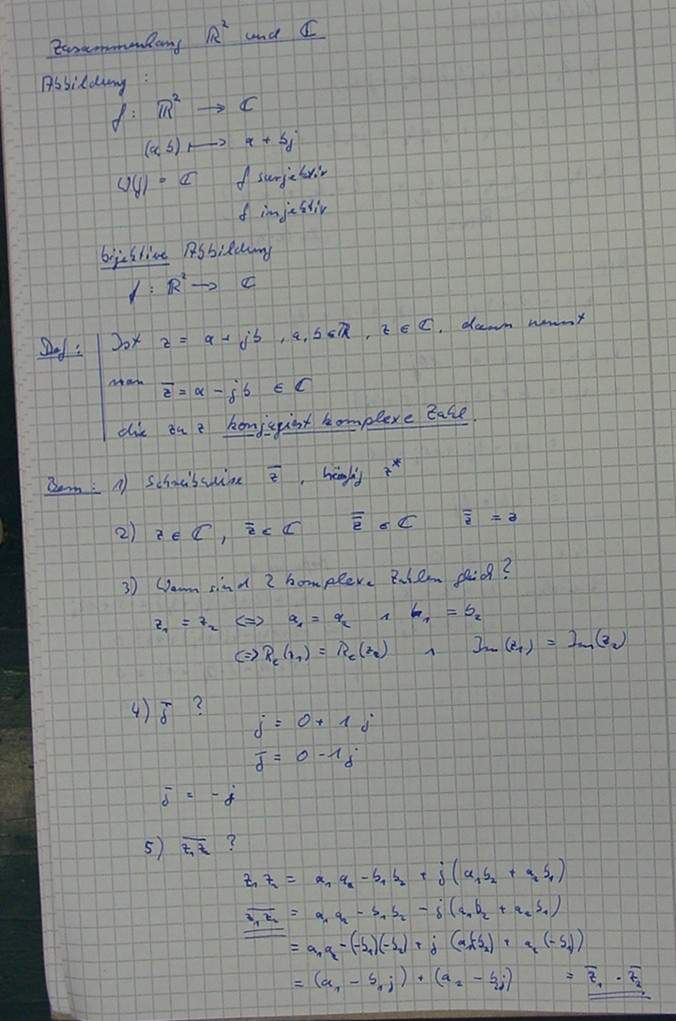 Zusammenhang ℝ² und ℂ
Abbildung :
f : ℝ² → ℂ
(a,b) ↦ a + bj
W(f) = ℂ f surjektiv
f injektiv
bijektive Abbildung
f : ℝ² → ℂ
Def : Ist z = a + jb , a, b ∈ ℝ , z ∈ ℂ, dann nennt
man z̅ = a - jb ∈ ℂ
die zu z konjugiert komplexe Zahl.
Bem : 1) Schreibweise z̅ , häufig z*
2) z ∈ ℂ , z̅ ∈ ℂ z̿ ∈ ℂ z̿ = z
3) Wann sind 2 komplexe Zahlen gleich ?
z₁ = z₂ ⇔ a₁ = a₂ ∧ b₁ = b₂
⇔ Re(z₁) = Re(z₂) ∧ Im(z₁) = Im(z₂)
4) j̅ ?
j = 0 + 1 j
j̅ = 0 - 1 j
j̅ = - j
5) z̅₁z̅₂ ?
z₁ z₂ = a₁ a₂ - b₁ b₂ + j (a₁ b₂ + a₂ b₁)
z̅₁z̅₂ = a₁ a₂ - b₁ b₂ - j (a₁ b₂ + a₂ b₁)
= a₁ a₂ - (-b₁)(-b₂) + j (a₁(-b₂) + a₂ (-b₁))
= (a₁ - b₁ j) + (a₂ - b₂ j) = z̅₁ · z̅₂